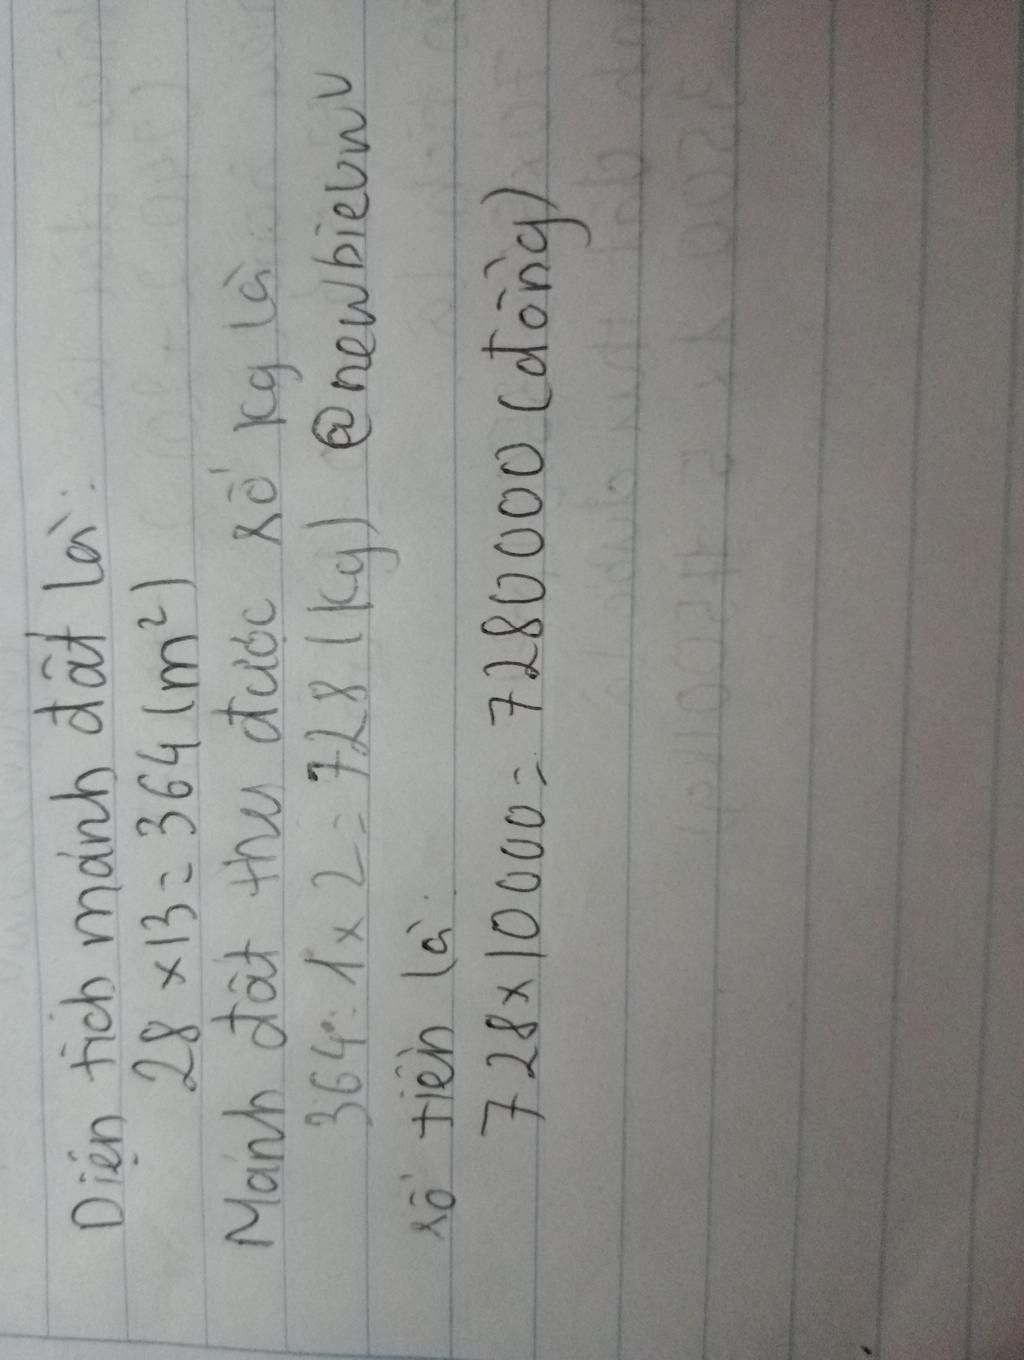 Diện tích mảnh đất là:
28 x 13 = 364 (m²)
Mảnh đất thu được số kg là
364 : 1 x 2 = 728 (kg) @newbievnv
số tiền là:
728 x 10000 = 7280000 (đồng)